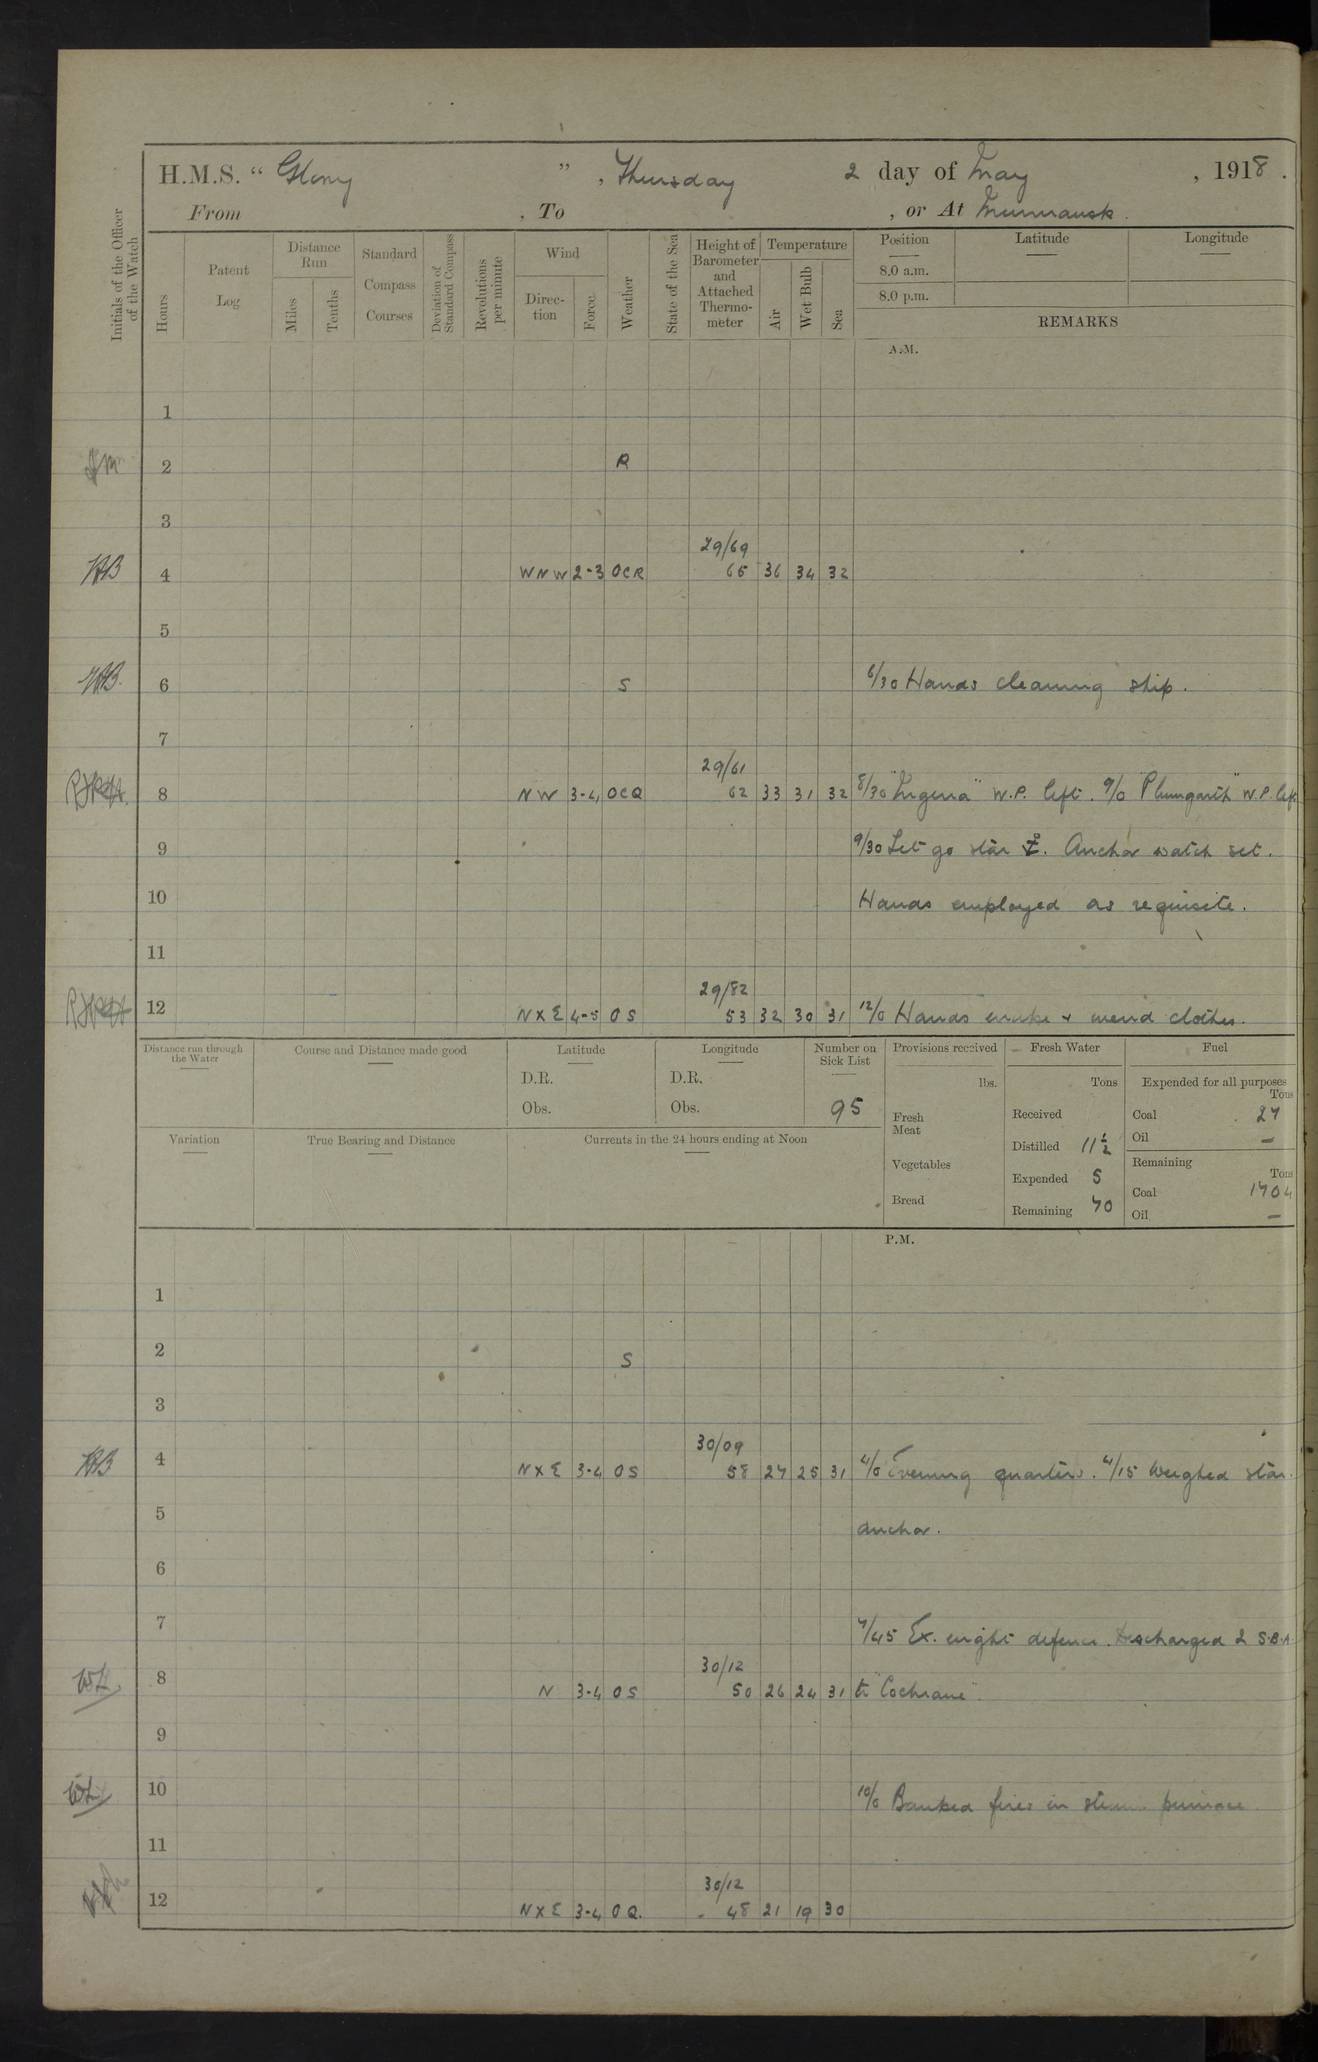 H.M.S. “ Glory ” , Thursday 2 day of May , 1918 .
From , To , or At Murmansk .
Initials of the Officer of the Watch
Hours
Patent Log
Distance Run
Miles
Tenths
Standard Compass Courses
Deviation of Standard Compass
Revolutions per minute
Wind
Direc- tion
Force
Weather
State of the Sea
Height of Barometer and Attached Thermo- meter
Temperature
Air
Wet Bulb
Sea
Position
Latitude
Longitude
8.0 a.m.
8.0 p.m.
REMARKS
A.M.
1
2 R
3
29/69
4 WNW 2-3 OCR 65 36 34 32
5
6 S 6/30 Hands cleaning ship.
7
29/61
8 NW 3-4 OCQ 62 33 31 32 8/30 W.P. left. 9/0 W.P. left
9 9/30 Let go star ⚓. Anchor watch set.
10 Hands employed as requisite.
11
29/82
12 NXE 4-5 OS 53 32 30 31 12/0 Hands make & mend clothes.
Distance run through the Water
Course and Distance made good
Latitude
D.R.
Obs.
Longitude
D.R.
Obs.
Number on Sick List
95
Provisions received
lbs.
Fresh Meat
Vegetables
Bread
Fresh Water
Tons
Received
Distilled 11½
Expended 5
Remaining 70
Fuel
Expended for all purposes
Tons
Coal 27
Oil —
Remaining
Tons
Coal 1704
Oil —
Variation
True Bearing and Distance
Currents in the 24 hours ending at Noon
P.M.
1
2 S
3
30/09
4 NXE 3-4 OS 58 27 25 31 4/0 Evening quarters. 4/15 Weighed star.
5 anchor.
6
7 7/45 Ex. night defence. Discharged 2 S.B.A
30/12
8 N 3-4 OS 50 26 24 31 to "Cochrane".
9
10 10/0 Banked fires in steam pinnace
11
30/12
12 NXE 3-4 OQ. 48 21 19 30